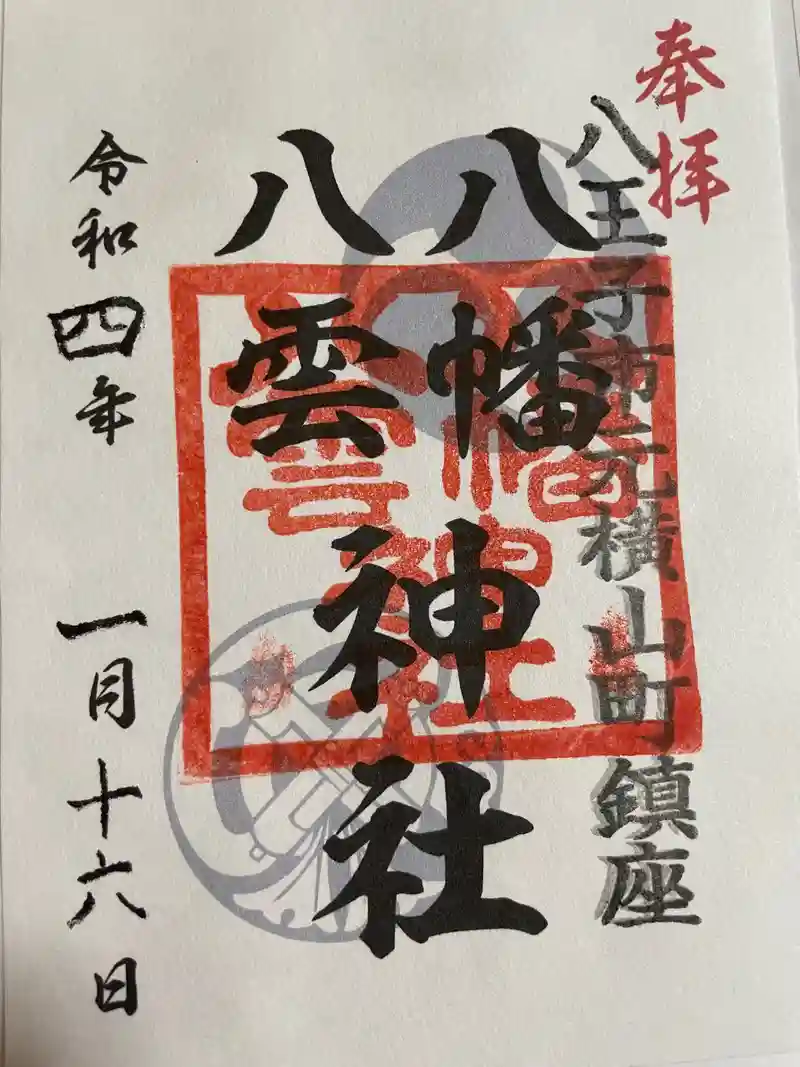 奉拝
八王子市元横山町鎮座
八幡
八雲
神社
令和四年 一月十六日